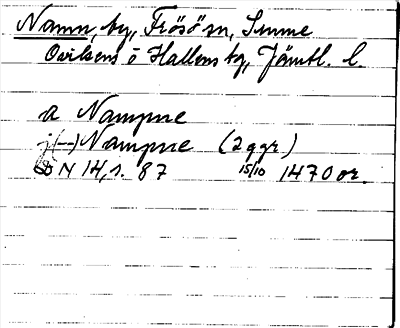 Namn, by, Frösö sn, Sunne
Oviksens o Hallens tg, Jämtl. l.
a Nampne
j (—) Nampne (2 ggr)
DN 14,1. 87 15/10 1470 or.